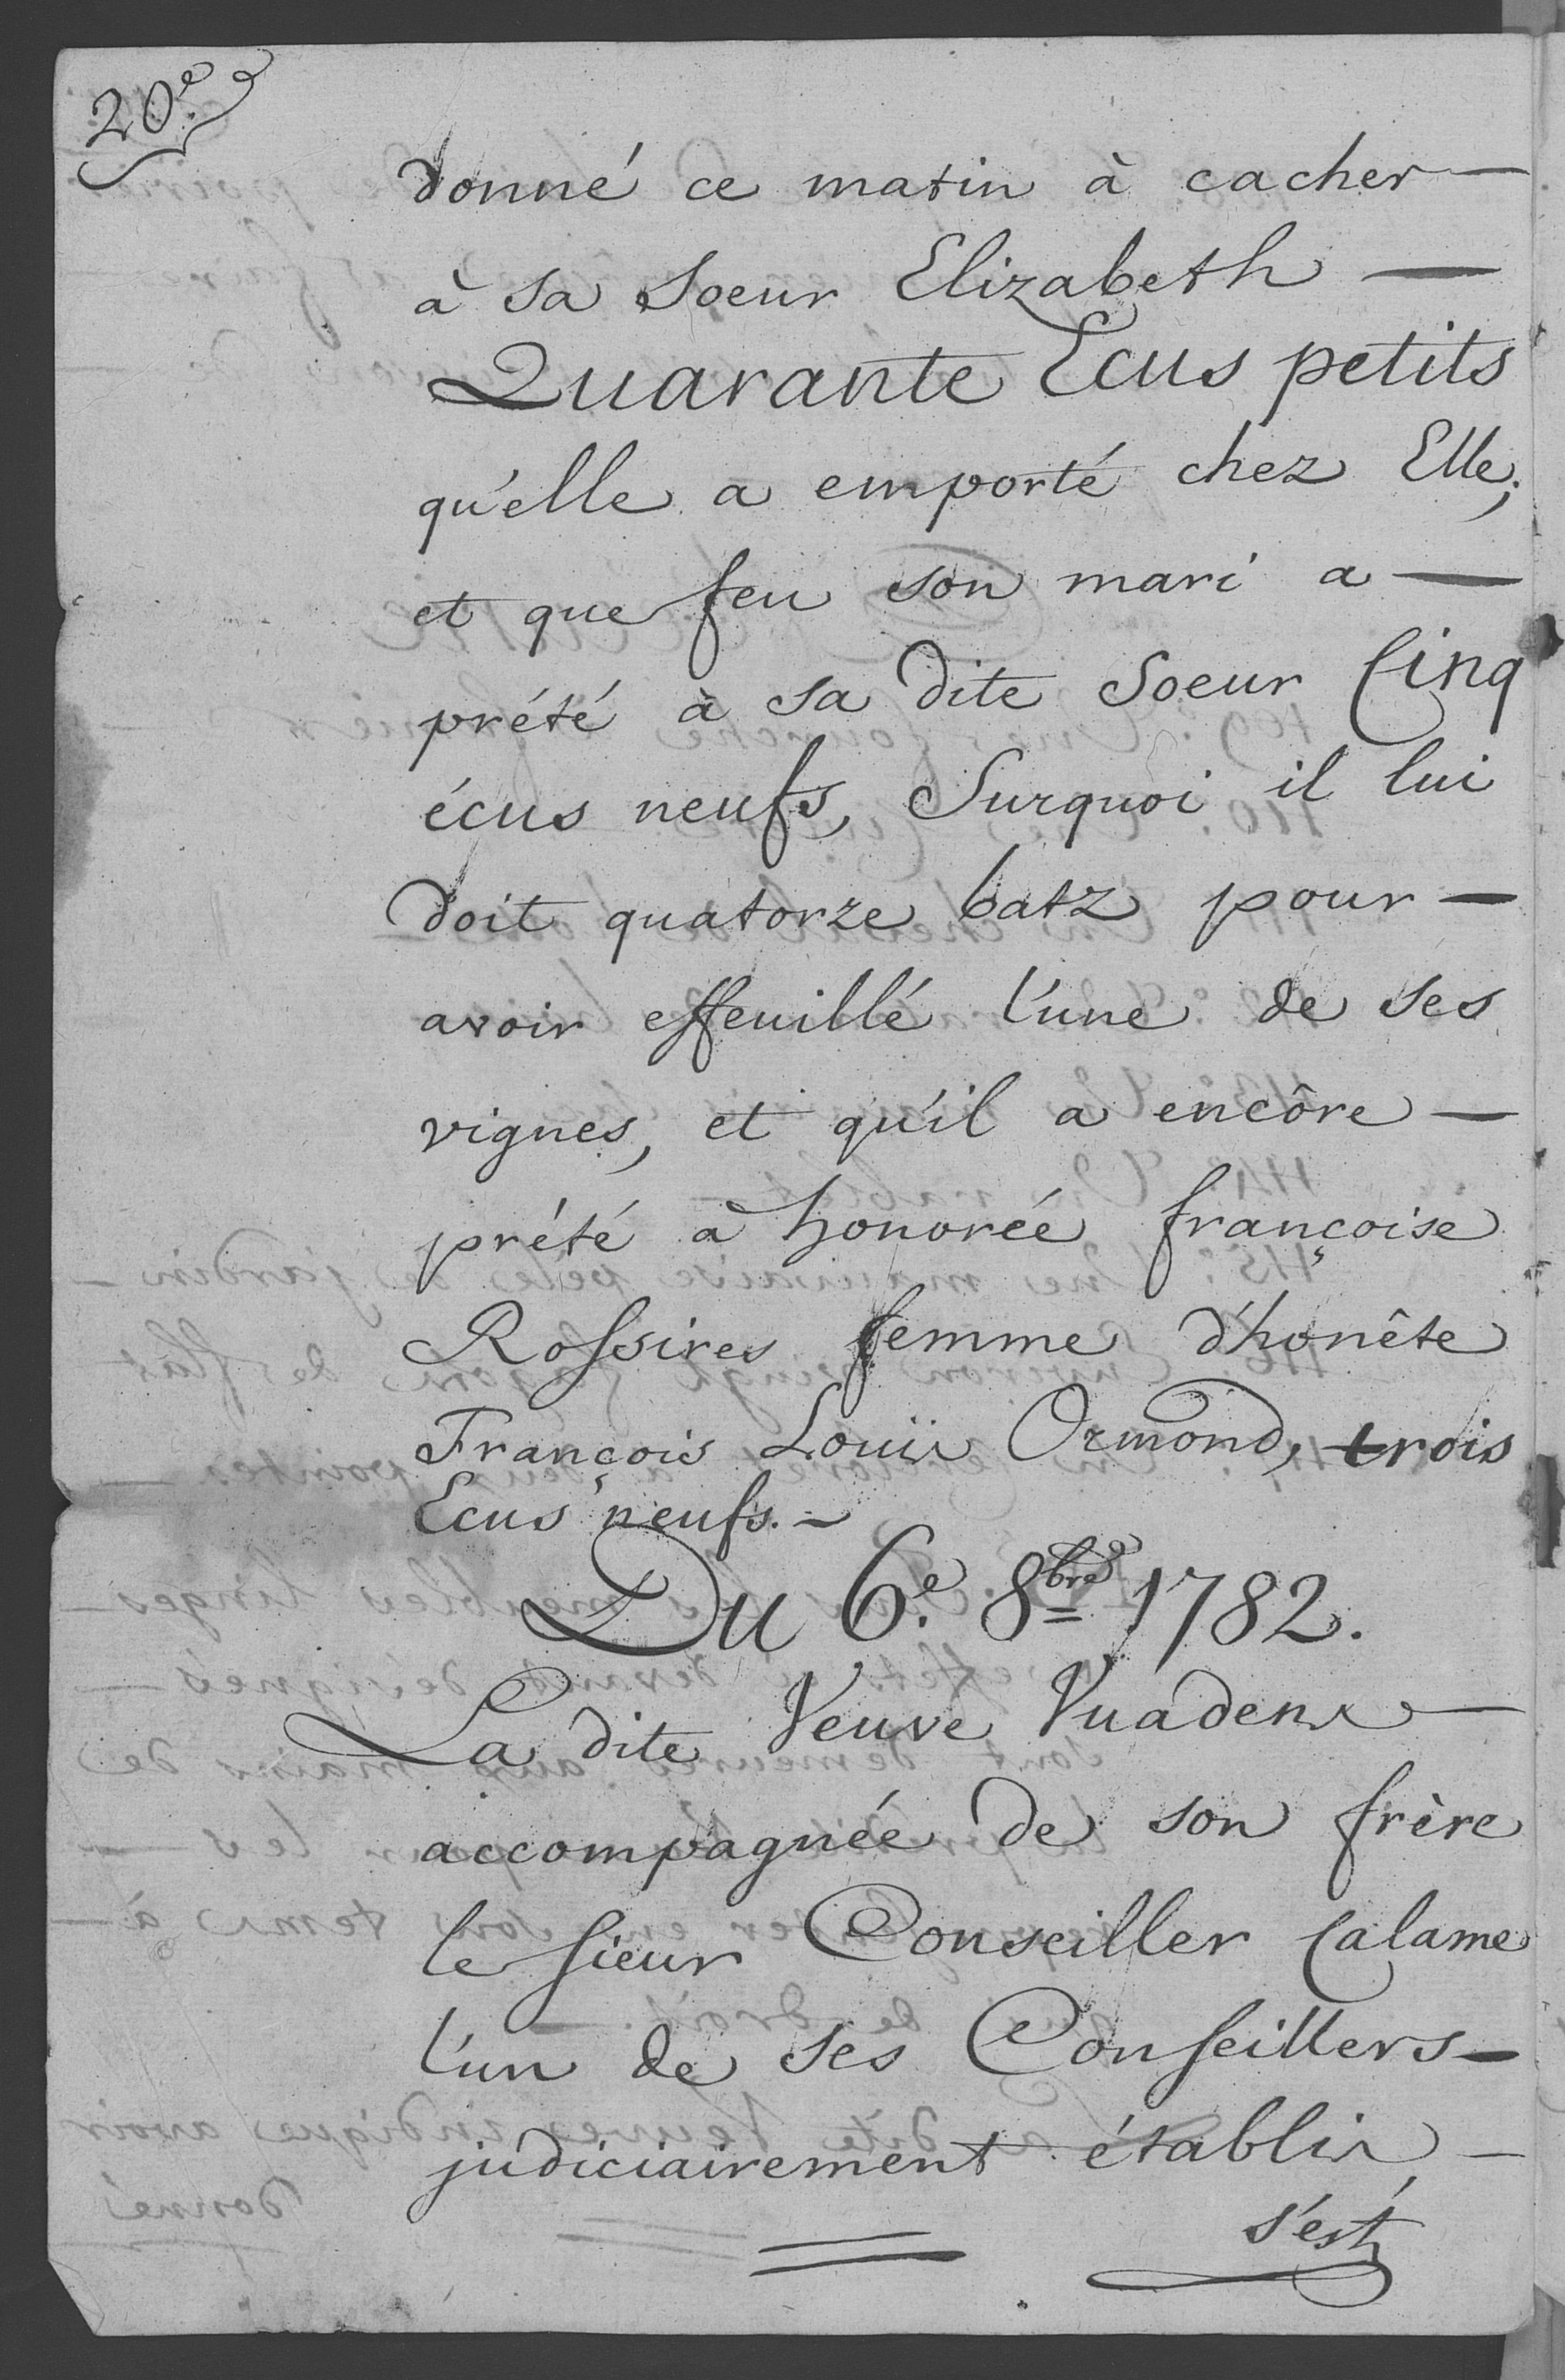 20e.
donné ce matin à cacher —
à sa Soeur Elizabeth —
Quarante Ecus petits
qu'elle a emporté chez Elle;
et que feu son mari a —
prété à sa dite Soeur Cinq
écus neufs, Surquoi il lui
doit quatorze batz pour —
avoir effeuillé l'une de ses
vignes, et qu'il a encôre —
prété à honorée françoise
Rossires femme d'honête
François Louïs Ormond, trois
Ecus neufs. —
Du 6e. 8bre 1782.
La dite Veuve Vuadens —
accompagnée de son frère
le Sieur Conseiller Calame
l'un de ses Conseillers —
judiciairement établis —
s'est